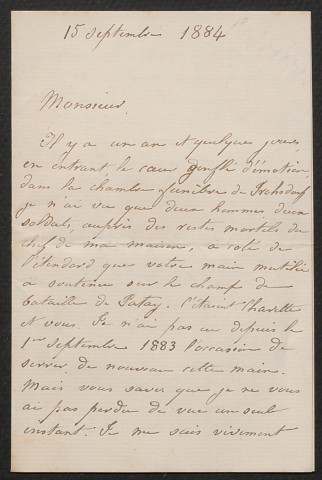 15 septembre 1884
Monsieur,
Il y a un an et quelques jours,
en entrant, le cœur gonflé d'émotion,
dans la chambre funèbre de Frohsdorf
je n'ai vu que deux hommes, deux
soldats, auprès des restes mortels du
chef de ma maison, à coté de
l'étendard que votre main mutilée
a soutenu sur le champ de
bataille de Patay. C'était Charette
et vous. Je n'ai pas eu depuis le
1er septembre 1883 l'occasion de
serrer de nouveau cette main.
Mais vous savez que je ne vous
ai pas perdu de vue un seul
instant. Je me suis vivement